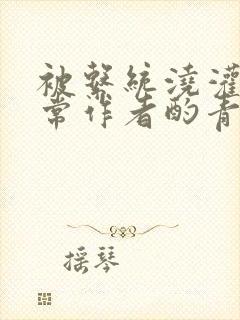 被繫統澆灌
常作者酌青
摇琴